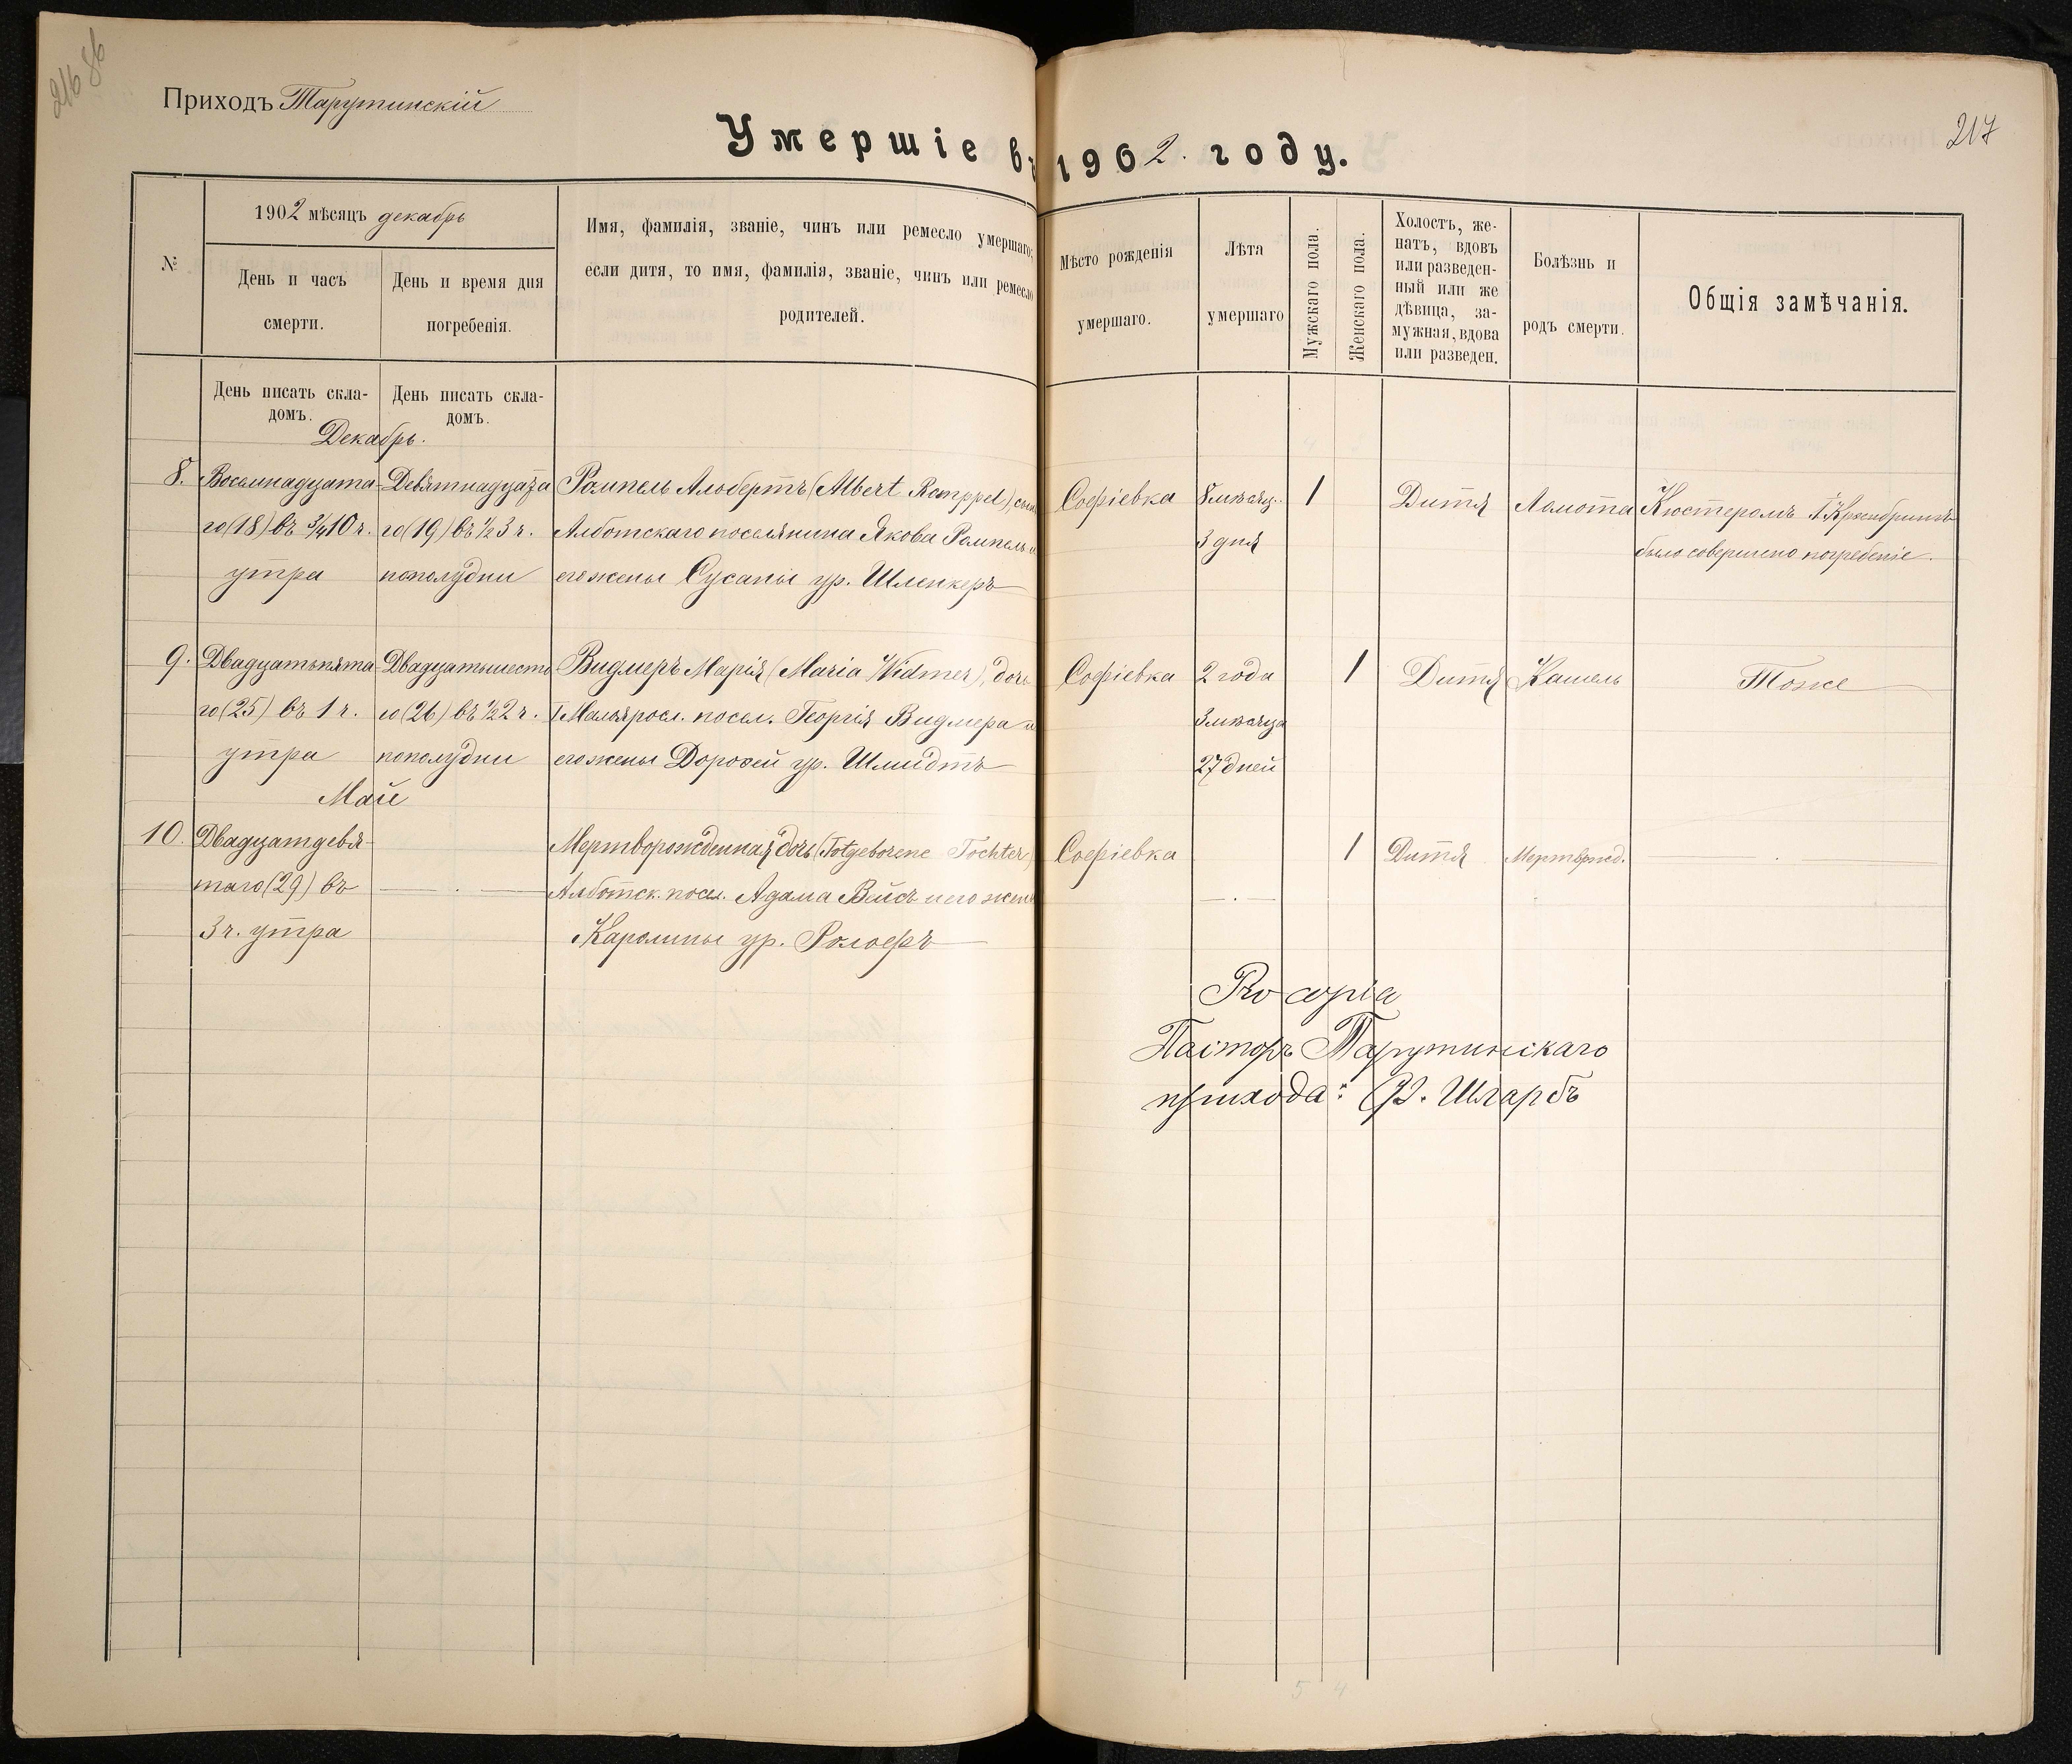 216 86
Приходъ Тарутинскій
Умершіе въ 1902. году.
217
№
1902 мѣсяцъ декабрь
День и часъ смерти.
День и время дня погребенія.
Имя, фамилія, званіе, чинъ или ремесло умершаго;
если дитя, то имя, фамилія, званіе, чинъ или ремесло
родителей.
Мѣсто рожденія
умершаго.
Лѣта
умершаго
Мужскаго пола.
Женскаго пола.
Холостъ, же-
натъ, вдовъ
или разведен-
ный или же
дѣвица, за-
мужная, вдова
или разведен.
Болѣзнь и
родъ смерти.
Общія замѣчанія.
День писать скла-
домъ.
День писать скла-
домъ.
Декабрь.
8. Восемнадцата-
го (18) въ ¾10 ч.
утра
Девятнадцата
го (19) въ ½3 ч.
пополудни
Рампель Альбертъ (Albert Ramppel), сынъ
Алботскаго поселянина Якова Рампель и
его жены Сусаны ур. Шленкеръ
Софіевка
8 мѣсяц.
3 дня
1
Дитя
Ломота
Кюстеромъ
было совершено погребеніе.
9. Двадцатьпята
го (25) въ 1 ч.
утра
Двадцатьшеста
го (26) въ ½2 ч.
пополудни
Видмеръ Марія (Maria Widmer), дочь
I Малоярося. посел. Георгія Видмера и
его жены Доротеи ур. Шмидтъ
Софіевка
2 года
3 мѣсяца
27 дней
1
Дитя
Кашель
Тоже
Май
10. Двадцатдевя-
таго (29) въ
3 ч. утра
Мертворожденная дочь (Totgeborene Tochter)
Алботск. посел. Адама Вейсъ и его жены
Каролины ур.Ролофъ
Софіевка
1
Дитя
Мертврожд.
Pro copia
Пасторъ Тарутинскаго
прихода: Ф. Шларбъ
5 4